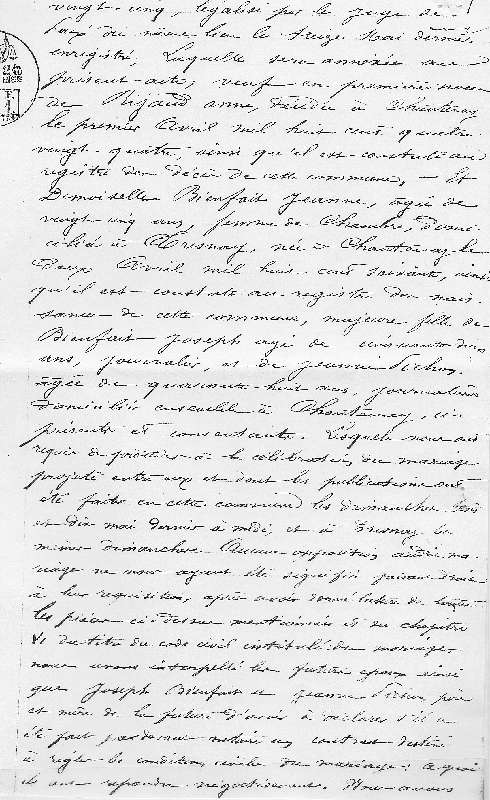 vingt-cinq, légalisé par le juge de
paix du même lieu le treize Mai dernier,
enregistré, laquelle sera annexée au
présent acte, veuf en premières noces
de Rigaud Anne, décédée à Chantenay
le premier Avril mil huit cent quatre
vingt-quatre, ainsi qu'il est constaté au
registre des décès de cette commune, - Et
Demoiselle Bienfait Jeanne, âgée de
vingt-cinq ans, femme de Chambre, domi
ciliée à Tresnay, née à Chantenay le
Deux Avril mil huit cent soixante, ainsi
qu'il est constaté au registre des nais
sances de cette commune, majeure, fille de
Bienfait Joseph âgé de cinquante
ans, journalier, et de Jeanne
âgée de quarante-huit ans, journalière
domiciliés ensemble à Chantenay, ici
présents et consentants. Lesquels nous ont
requis de procéder à la célébration du mariage
projeté entre eux et dont les publications ont
été faites en cette commune les dimanches trois
et dix mai dernier à midi, et à Tresnay les
mêmes dimanches. Aucune opposition audit ma
riage ne nous ayant été signifiée, faisant droit
à leur réquisition, après avoir donné lecture de toutes
les pièces ci-dessus mentionnées et du chapitre
VI du titre du code civil intitulé du mariage
nous avons interpellé les futurs époux ainsi
que Joseph Bienfait et Jeanne père
et mère de la future d'avoir à déclarer s'il a
été fait par devant notaire un contrat destiné
à régler les conditions civiles du mariage: à quoi
ils ont répondu négativement. Nous avons